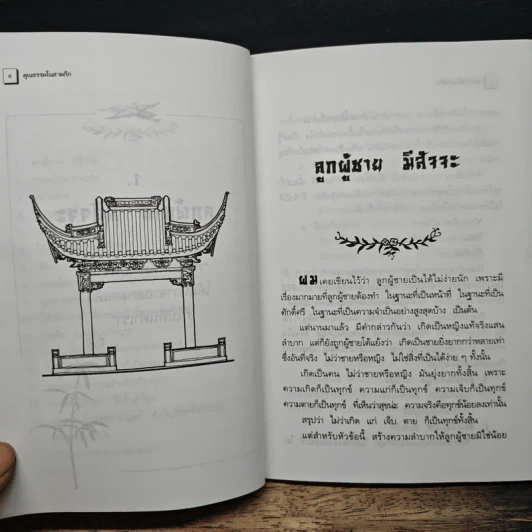 ๖
คุณธรรมในสามก๊ก
ลูกผู้ชาย มีสัจจะ
ผมเคยเขียนไว้ว่า ลูกผู้ชายเป็นได้ไม่ง่ายนัก เพราะมี
เรื่องมากมายที่ลูกผู้ชายต้องทำ ในฐานะที่เป็นหน้าที่ ในฐานะที่เป็น
ศักดิ์ศรี ในฐานะที่เป็นความจำเป็นอย่างสูงสุดบ้าง เป็นต้น
แต่นานมาแล้ว มีคำกล่าวกันว่า เกิดเป็นหญิงแท้จริงแสน
ลำบาก แต่ก็ยังถูกผู้ชายโต้แย้งว่า เกิดเป็นชายยิ่งยากกว่าหลายเท่า
ซึ่งอันที่จริง ไม่ว่าชายหรือหญิง ไม่ใช่สิ่งที่เป็นได้ง่าย ๆ ทั้งนั้น
เกิดเป็นคน ไม่ว่าชายหรือหญิง มันยุ่งยากทั้งสิ้น เพราะ
ความเกิดก็เป็นทุกข์ ความแก่ก็เป็นทุกข์ ความเจ็บก็เป็นทุกข์
ความตายก็เป็นทุกข์ ที่เห็นว่าสุขน่ะ ความจริงคือทุกข์น้อยลงเท่านั้น
สรุปว่า ไม่ว่าเกิด แก่ เจ็บ ตาย ก็เป็นทุกข์ทั้งสิ้น
แต่สำหรับหัวข้อนี้ สร้างความลำบากให้ลูกผู้ชายมิใช่น้อย